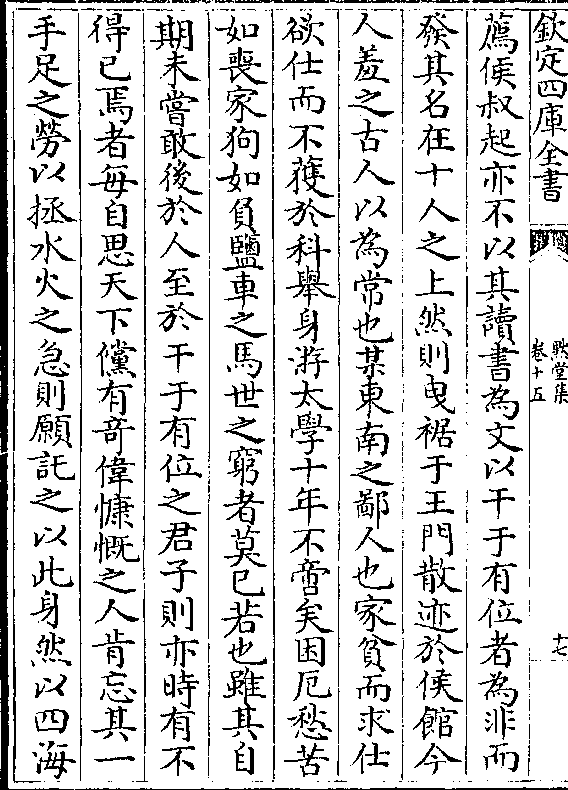 欽定四庫全書
黙堂集
卷十五
十七
薦侯叔起亦不以其讀書為文以干于有位者為非而
發其名在十人之上然則曳裾于王門散迹於侯館今
人羞之古人以為常也某東南之鄙人也家貧而求仕
欲仕而不獲於科舉身游太學十年不啻矣困厄愁苦
如喪家狗如負鹽車之馬世之窮者莫已若也雖其自
期未嘗敢後於人至於干于有位之君子則亦時有不
得已焉者每自思天下儻有竒偉慷慨之人肯忘其一
手足之勞以拯水火之急則願託之以此身然以四海